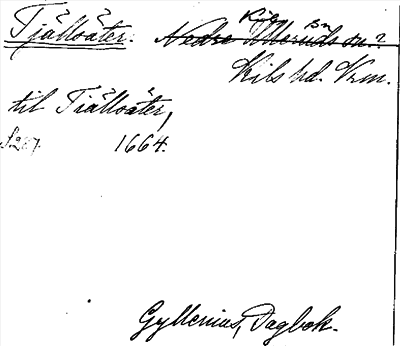 Tjällsåter. Nedre Ulleruds sn.?
Kils hd. Vrm.
til Tiällsåter,
1664.
Gyllenius, Dagbok.